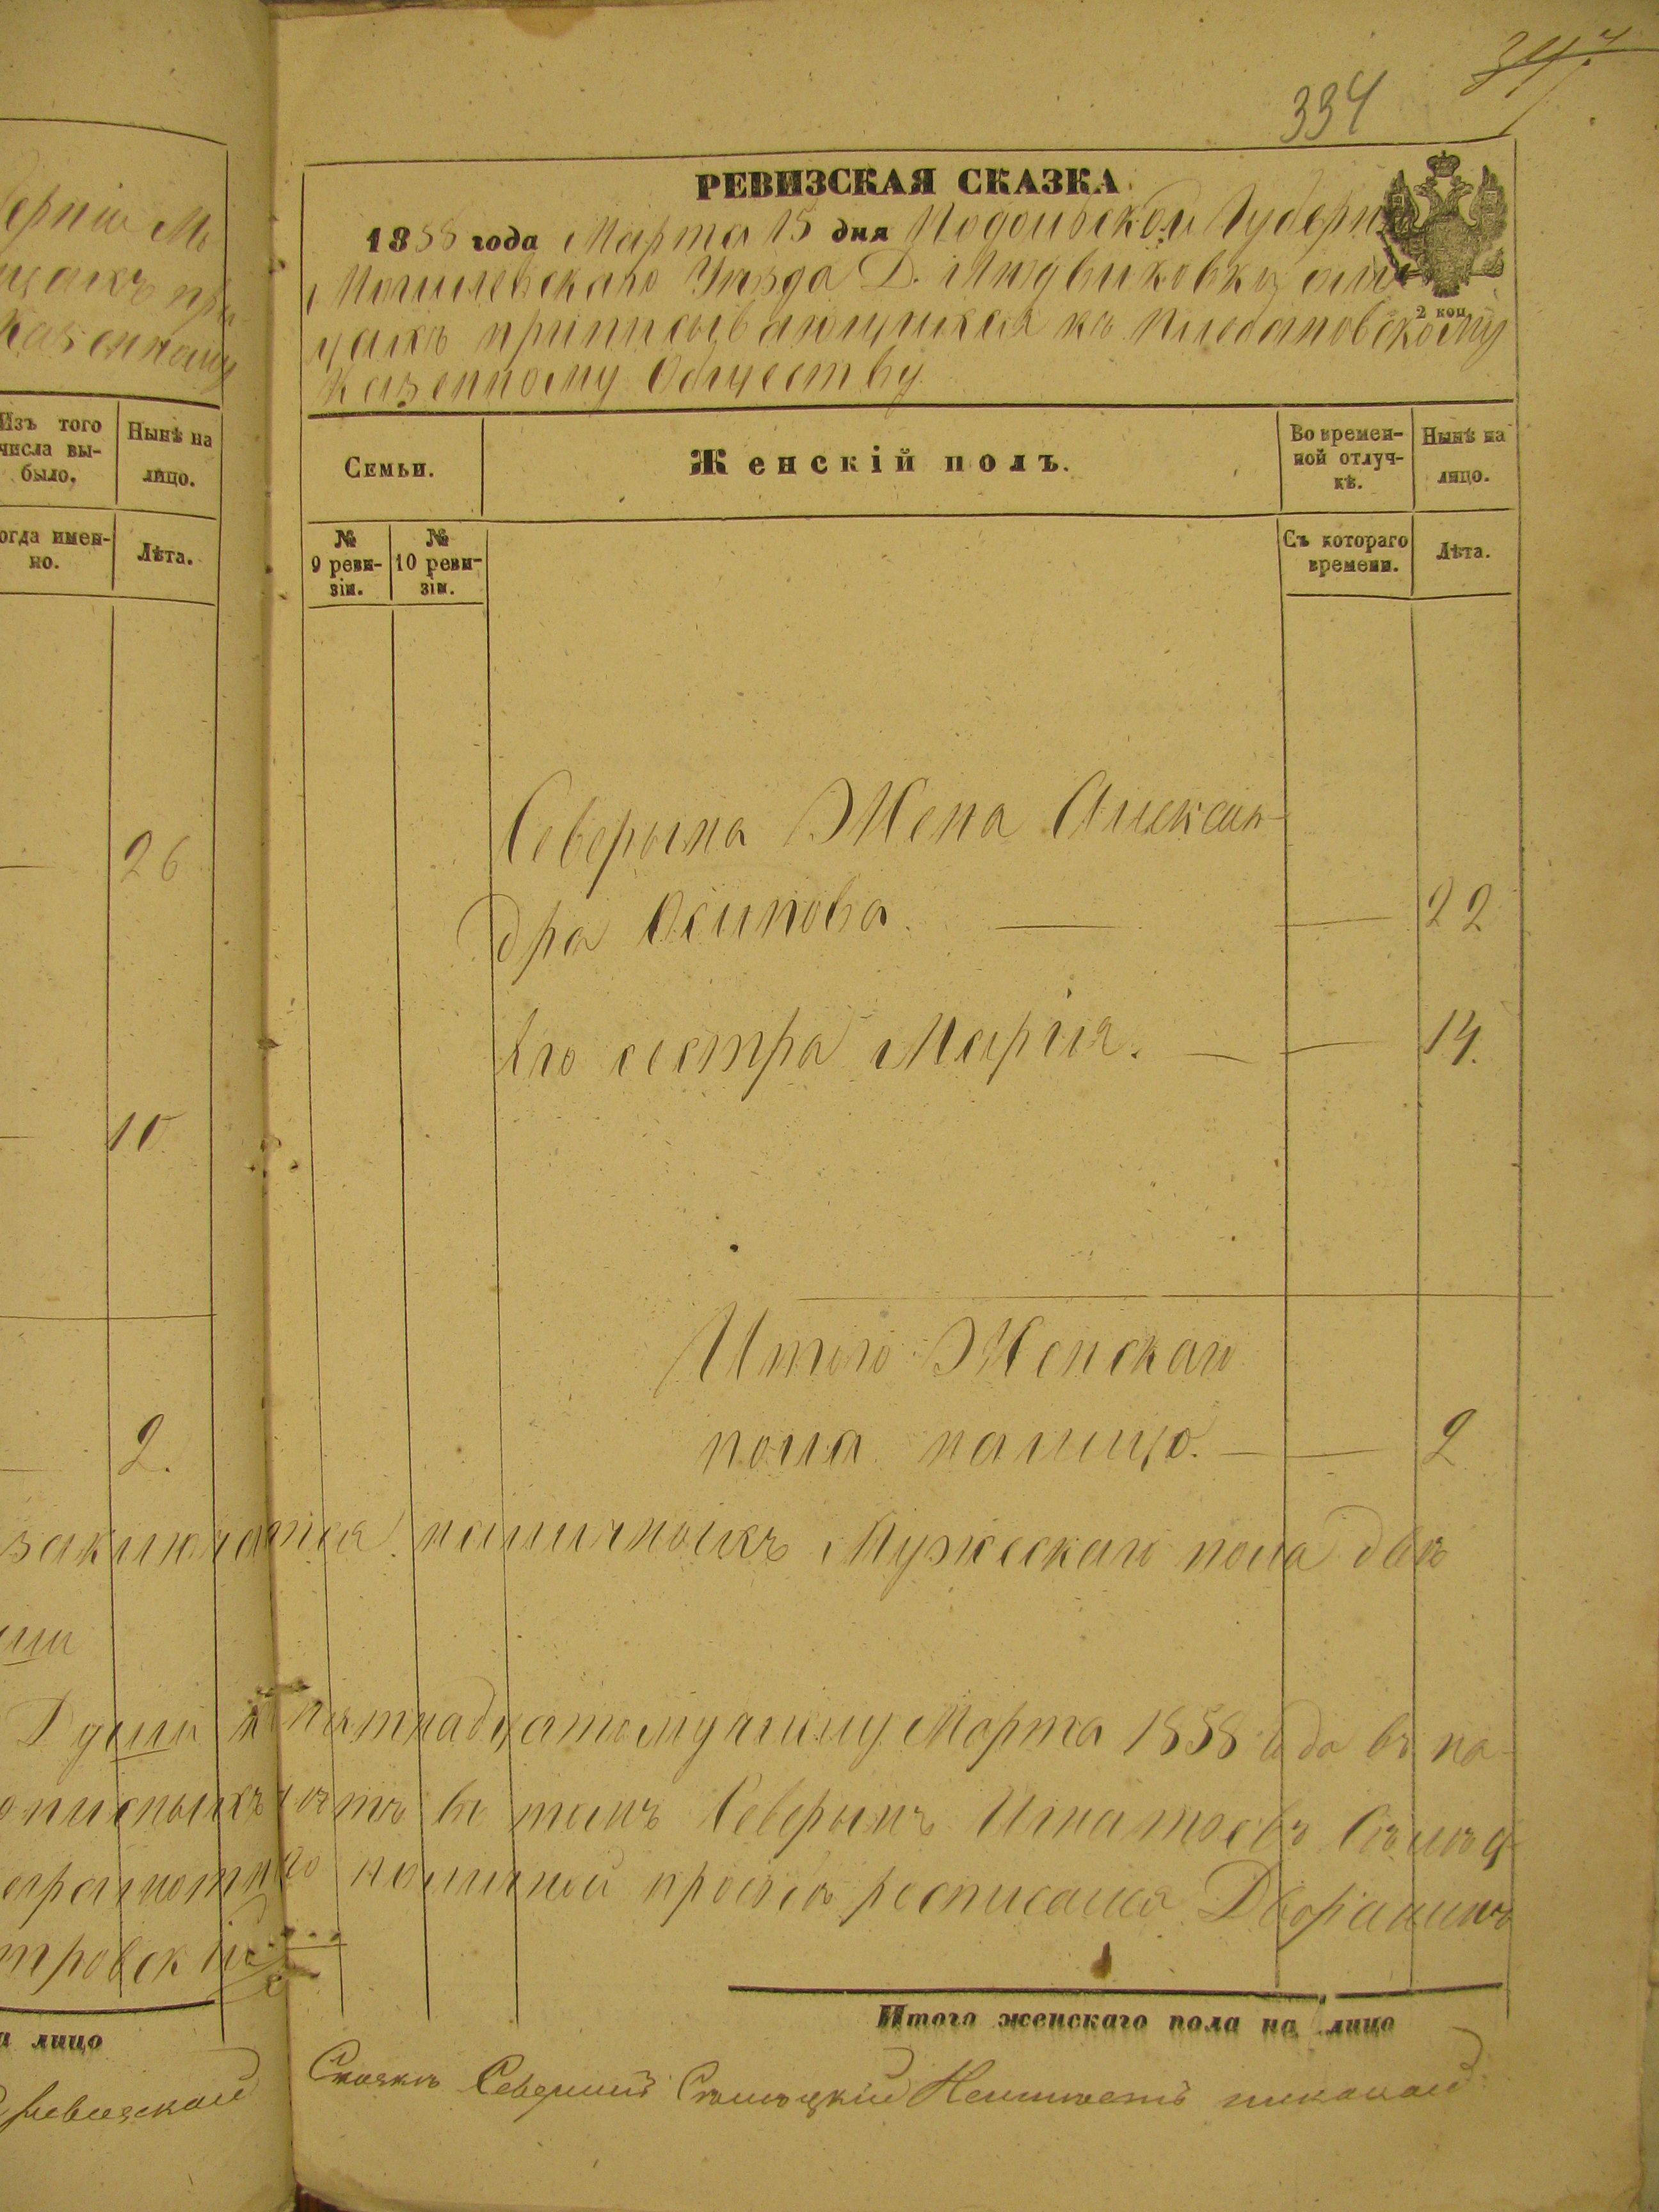 334
РЕВИЗСКАЯ СКАЗКА
1858 года Марта 15 дня Подольской Губерніи
Могилевскаго Уѣзда Д. Людвиковки о мѣ
щанъ приписывающихся къ
Казенному Обществу
2 коп.
Семьи.
Женскій полъ.
Во времен-
ной отлуч-
кѣ.
Нынѣ на
лицо.
№
9 реви-
зіи.
№
10 реви-
зіи.
Съ котораго
времени.
Лѣта.
Северына Жена Алексан-
дра Осипова. — — 22
Его сестра Марія. — — 14.
Итого Женскаго
пола налицо. — — 2
заключается наличныхъ Мужескаго пола двѣ
Души къ пятнадцатому числу Марта 1858 года въ на-
въ томъ Северынъ Игнатьевъ
личной прозьбѣ росписался Дворянинъ
тровскій
Итого женскаго пола на лицо
Северинъ
ерніи Мо
Казенному
Изъ того
числа вы-
было.
Нынѣ на
лицо.
огда имен-
но.
Лѣта.
— 26
— 10
— 2.
а лицо